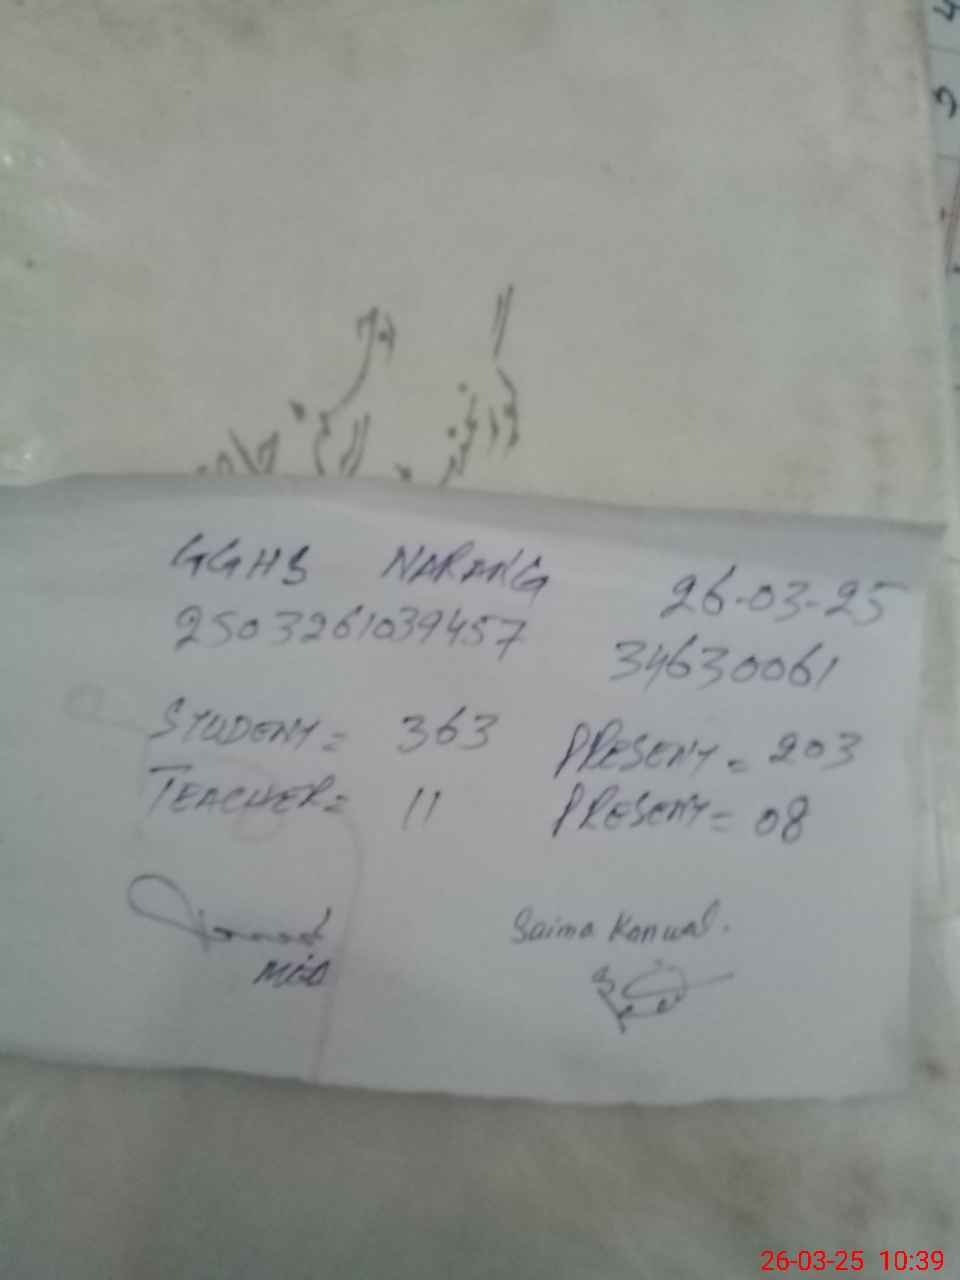 GGHS NARANG 26-03-25
2503261039457 34630061
STUDENT= 363 PRESENT= 203
TEACHER= 11 PRESENT= 08
Saima Kanwal.
26-03-25 10:39